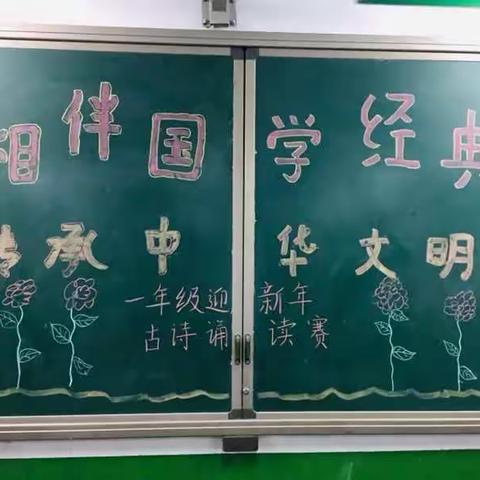 相伴国学经典
传承中华文明
一年级迎新年
古诗诵读赛